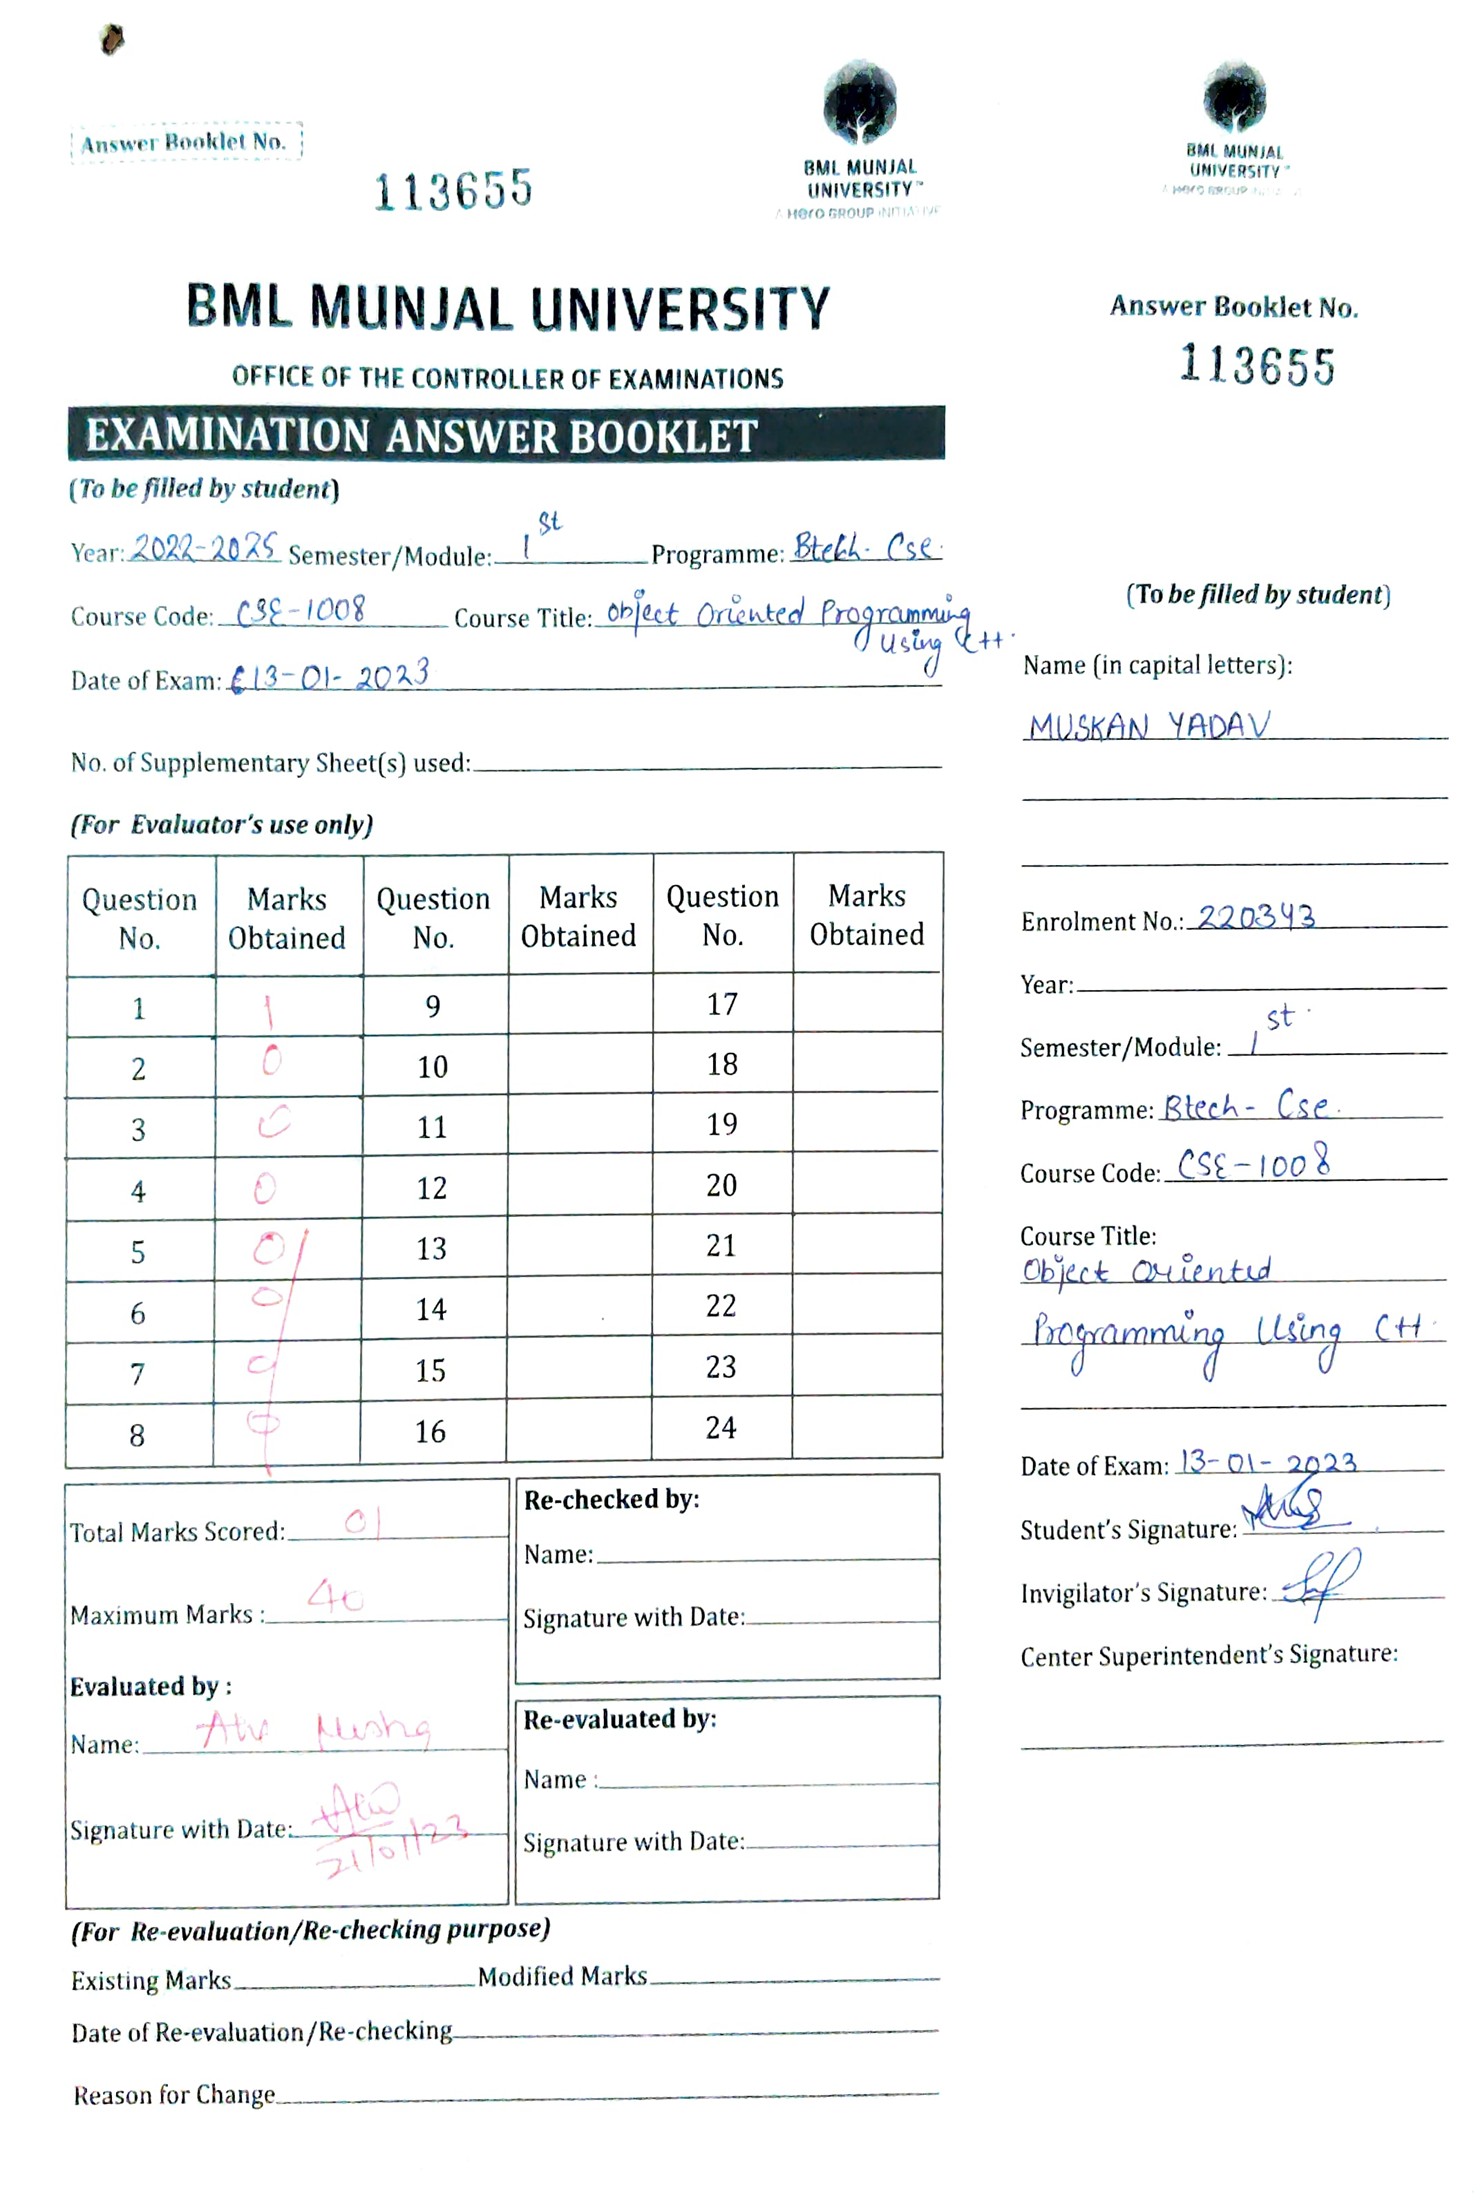 Answer Booklet No.
113655
BML MUNJAL
UNIVERSITY™
A Hero GROUP INITIATIVE
BML MUNJAL UNIVERSITY
OFFICE OF THE CONTROLLER OF EXAMINATIONS
EXAMINATION ANSWER BOOKLET
(To be filled by student)
Year: 2022-2025 Semester/Module: 1st Programme: Btech- Cse.
Course Code: CSE-1008 Course Title: Object Oriented Programming
Using C++.
Date of Exam: 13-01-2023
No. of Supplementary Sheet(s) used:
(For Evaluator's use only)
Question No. Marks Obtained Question No. Marks Obtained Question No. Marks Obtained
1 1 9 17
2 0 10 18
3 0 11 19
4 0 12 20
5 0 13 21
6 0 14 22
7 15 23
8 16 24
Total Marks Scored: 01
Maximum Marks : 40
Evaluated by :
Name:
Signature with Date: 21/01/23
Re-checked by:
Name:
Signature with Date:
Re-evaluated by:
Name :
Signature with Date:
(For Re-evaluation/Re-checking purpose)
Existing Marks Modified Marks
Date of Re-evaluation/Re-checking
Reason for Change
BML MUNJAL
UNIVERSITY™
A Hero GROUP
Answer Booklet No.
113655
(To be filled by student)
Name (in capital letters):
MUSKAN YADAV
Enrolment No.: 220343
Year:
Semester/Module: 1st.
Programme: Btech- Cse.
Course Code: CSE-1008
Course Title:
Object Oriented
Programming Using C++.
Date of Exam: 13-01-2023
Student's Signature:
Invigilator's Signature:
Center Superintendent's Signature: